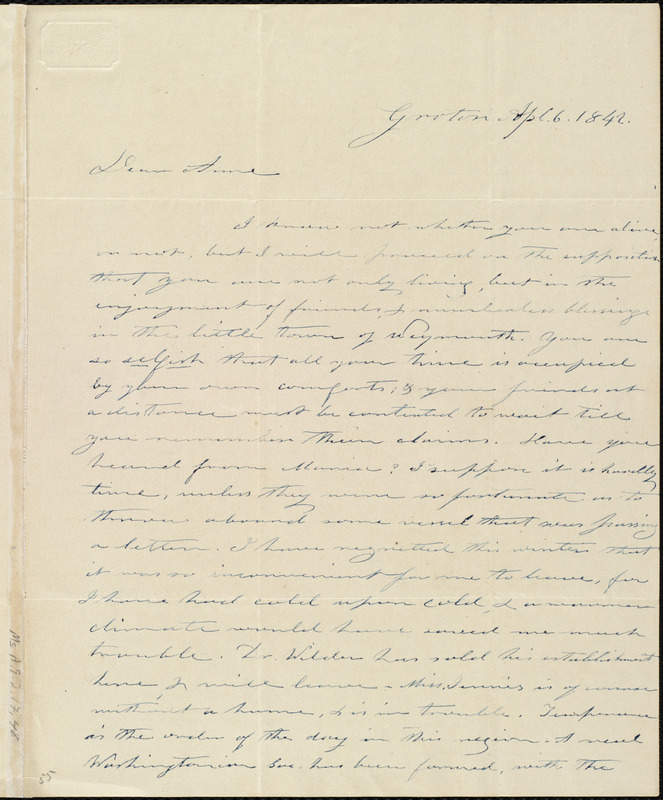 Groton Apl. 6. 1842.
Dear Anne
I know not whether you are alive
or not, but I will proceed on the supposition
that you are not only living, but in the
enjoyment of friends & numberless blessings
in the little town of Weymouth. You are
so selfish that all your time is occupied
by your own comforts; & your friends at
a distance must be contented to wait till
you remember their claims. Have you
heard from Maria? I suppose it is hardly
time, unless they were so fortunate as to
throw aboard some vessel that was passing
a letter. I have regretted this winter that
it was so inconvenient for me to leave, for
I have had cold upon cold, & a warmer
climate would have saved me much
trouble. Dr. Wilder has sold his establishment
here & will leave - Miss Jennie is of course
without a home, & is in trouble. Temperance
is the order of the day in this region. A real
Washingtonian Soc. has been formed, with the
Ms.A.9.2.17.48